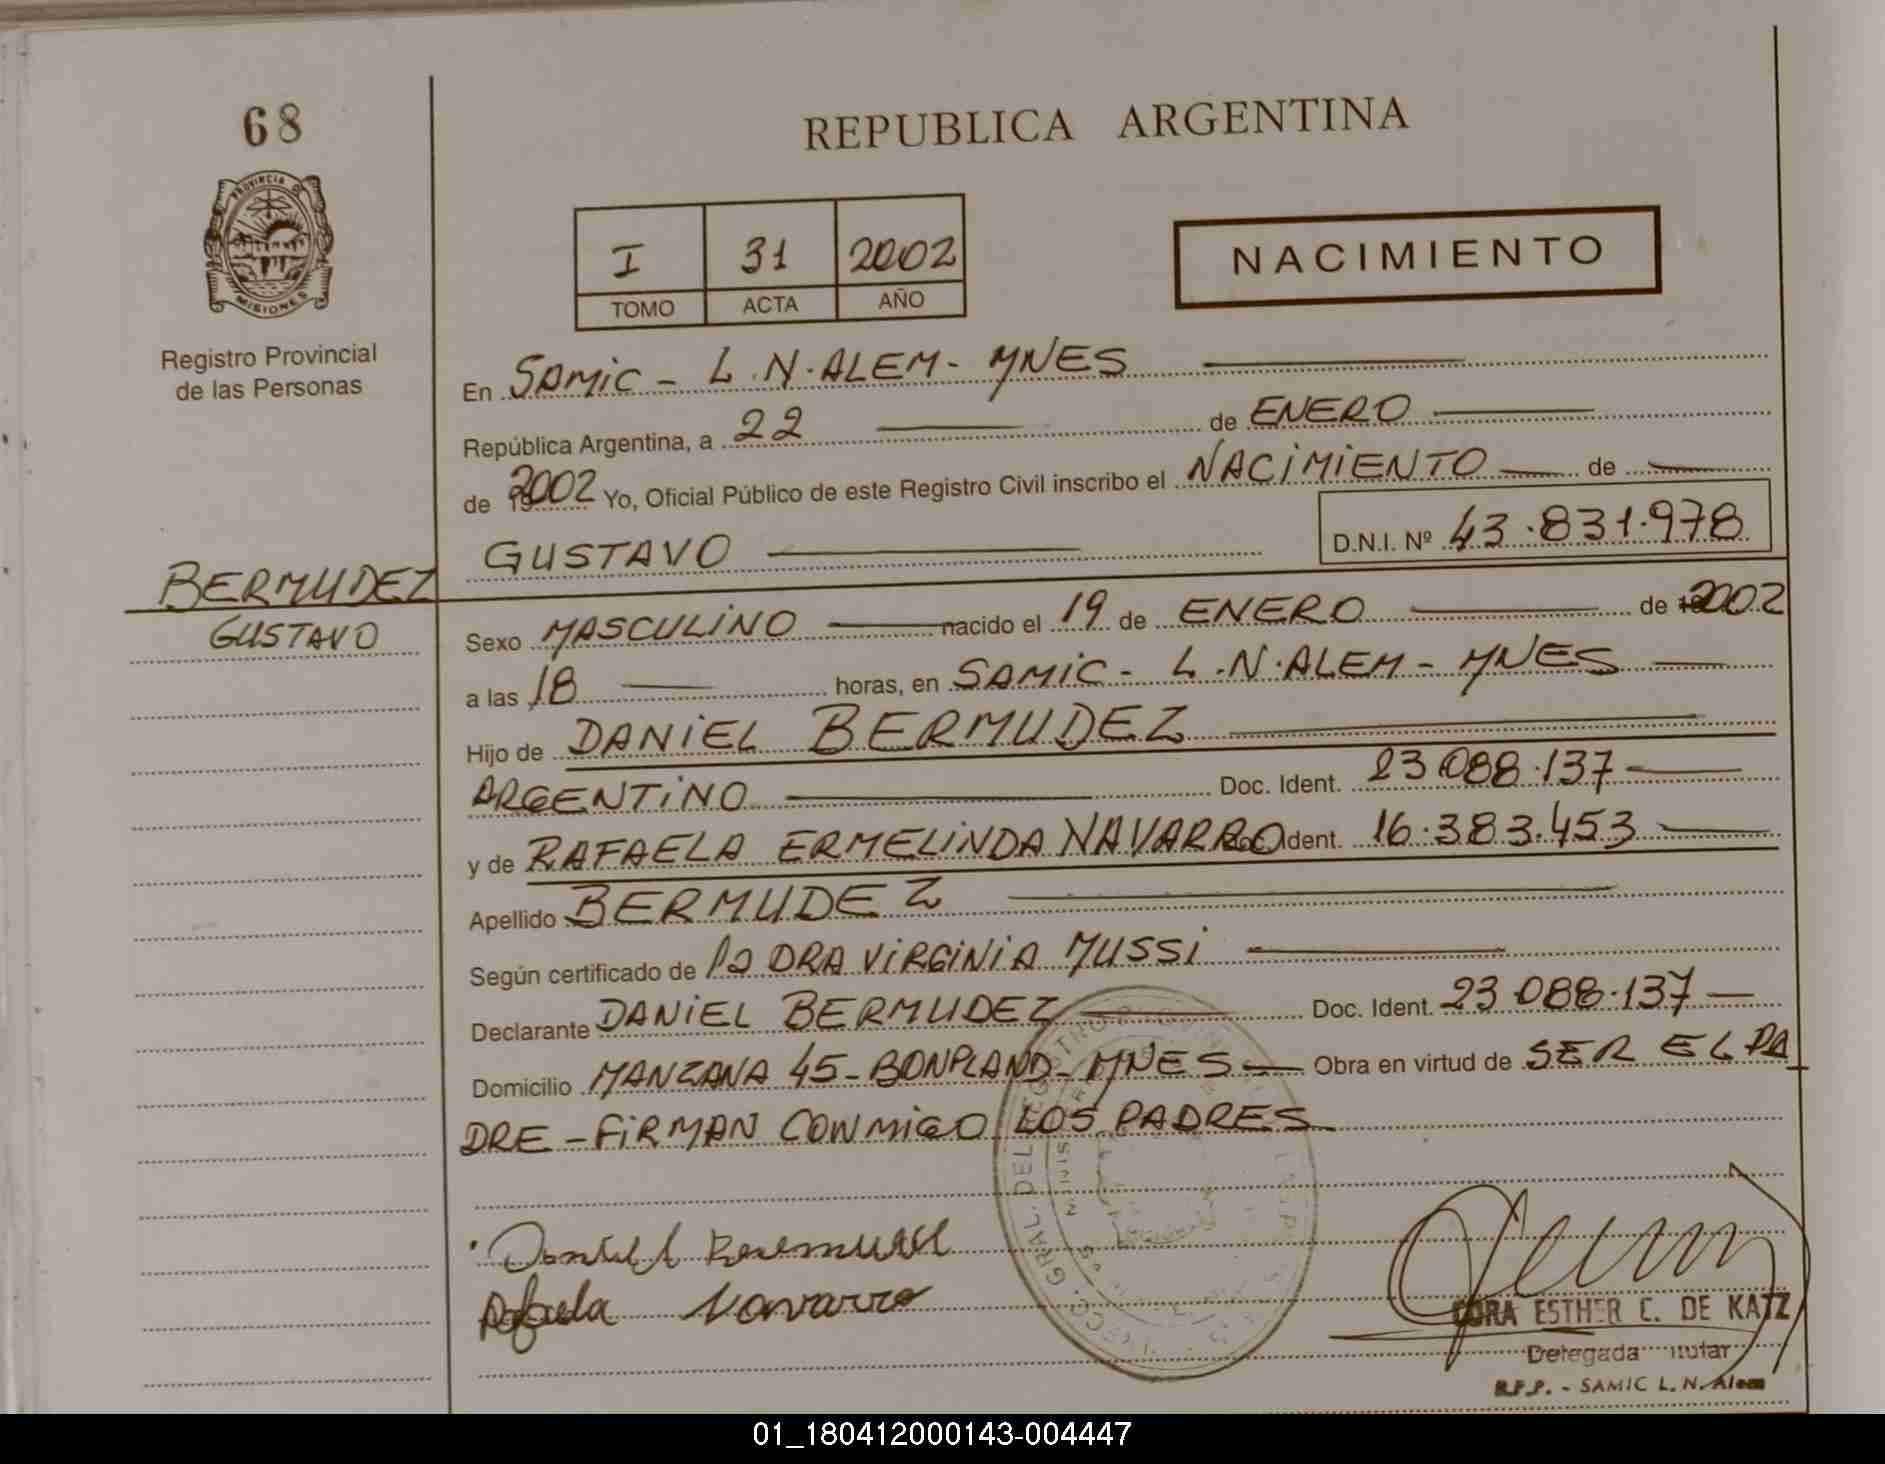 68
PROVINCIA DE
MISIONES
Registro Provincial
de las Personas
BERMUDEZ
GUSTAVO
REPUBLICA ARGENTINA
I 31 2002
TOMO ACTA AÑO
NACIMIENTO
En SAMIC - L.N.ALEM - MNES
República Argentina, a 22 de ENERO
de 2002 Yo, Oficial Público de este Registro Civil inscribo el NACIMIENTO de
GUSTAVO D.N.I. Nº 43.831.978
Sexo MASCULINO nacido el 19 de ENERO de 2002
a las 18 horas, en SAMIC - L.N.ALEM - MNES
Hijo de DANIEL BERMUDEZ
ARGENTINO Doc. Ident. 23.088.137
y de RAFAELA ERMELINDA NAVARRO Doc. Ident. 16.383.453
Apellido BERMUDEZ
Según certificado de DRA VIRGINIA MUSSI
Declarante DANIEL BERMUDEZ Doc. Ident. 23.088.137
Domicilio MANZANA 45 - BONPLAND - MNES Obra en virtud de SER EL PA
DRE - FIRMAN CONMIGO LOS PADRES
Daniel Bermudez
Rafaela Navarro
GRAL. DEL REGISTRO
CORA ESTHER C. DE KATZ
Delegada Titular
R.P.P. - SAMIC L. N. Alem
01_180412000143-004447